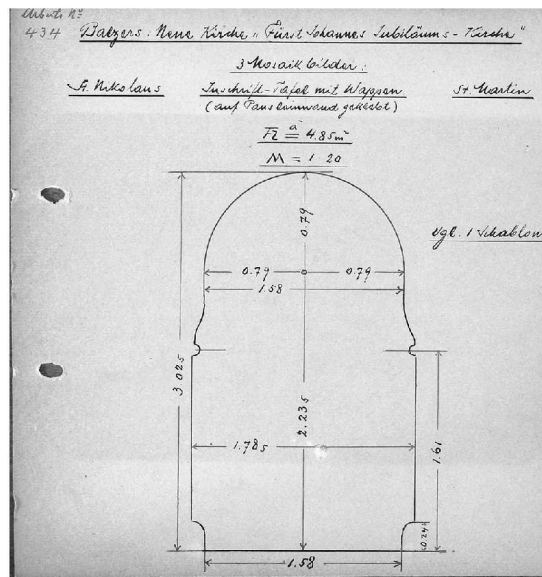 Arbeits No
434
Balzers: Neue Kirche "Fürst Johannes Jubiläums - Kirche"
3 Mosaikbilder:
St. Nikolaus Inschrift-Tafel mit Wappen St. Martin
(auf Pausleinwand geklebt)
Fl à = 4.85m²
M = 1 20
0.79
vgl. 1 Schablon
0.79 0.79
1.58
3.025
2.235
1.785
1.61
0.24
1.58